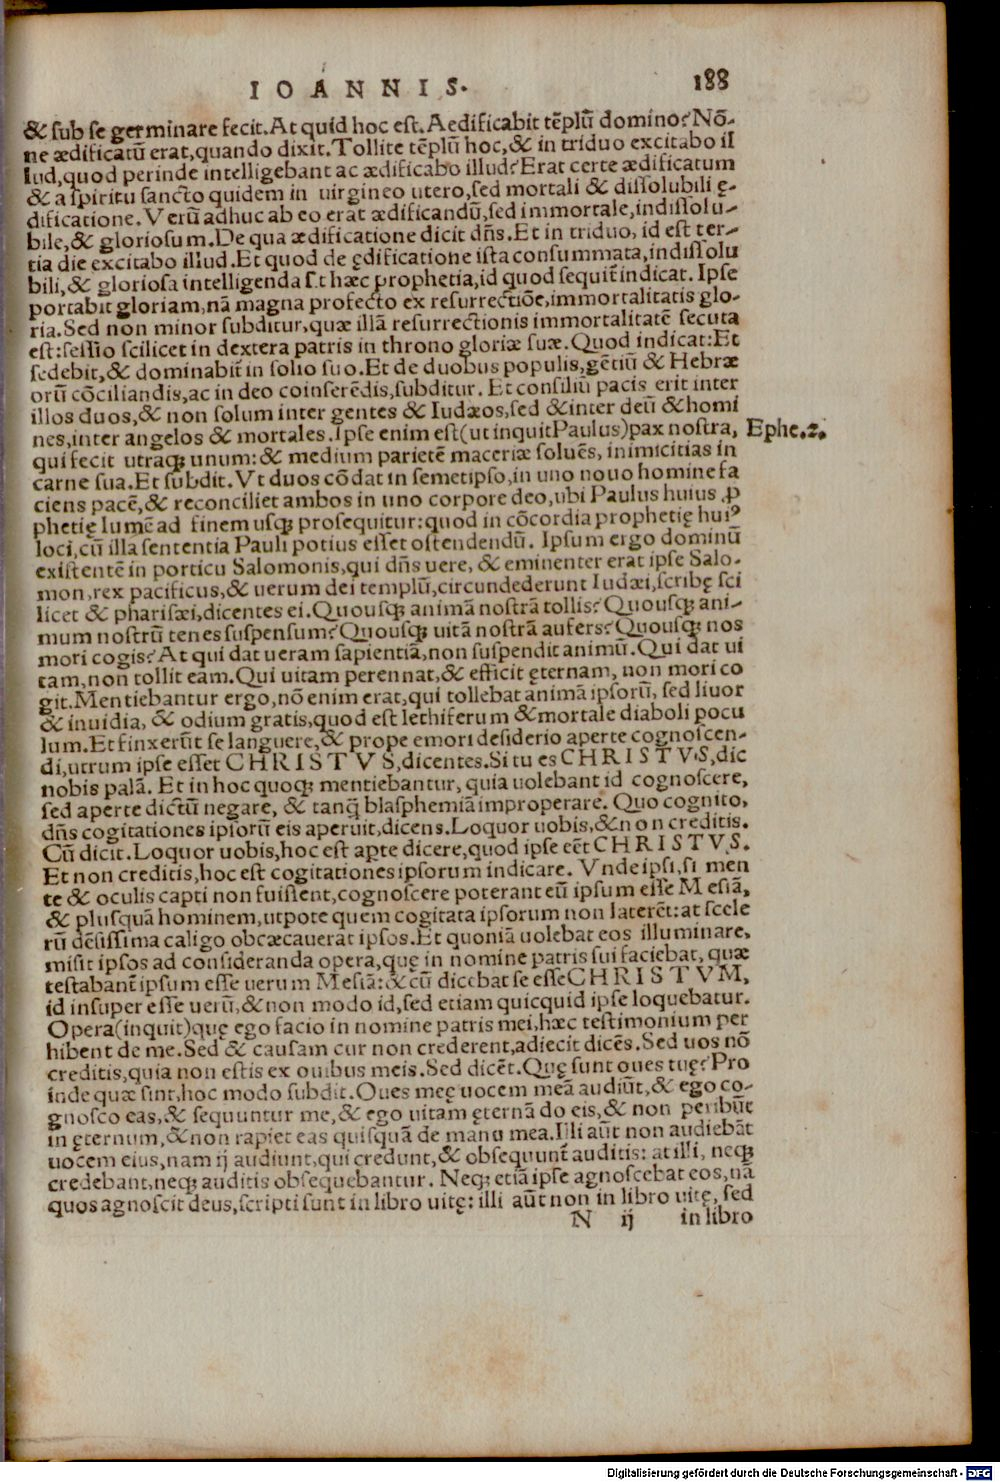 IOANNIS. 188
& sub se germinare fecit. At quid hoc est. Aedificabit tẽplũ domino? Nõ-
ne ædificatũ erat, quando dixit. Tollite tẽplũ hoc, & in triduo excitabo il
lud, quod perinde intelligebant ac ædificabo illud? Erat certe ædificatum
& a spiritu sancto quidem in uirgineo utero, sed mortali & dissolubili ę-
dificatione. Verũ adhuc ab eo erat ædificandũ, sed immortale, indissolu-
bile, & gloriosum. De qua ædificatione dicit dñs. Et in triduo, id est ter-
tia die excitabo illud. Et quod de ędificatione ista consummata, indissolu
bili, & gloriosa intelligenda sit hæc prophetia, id quod sequit̃ indicat. Ipse
portabit gloriam, nã magna profecto ex resurrectiõe, immortalitatis glo-
ria. Sed non minor subditur, quæ illã resurrectionis immortalitatẽ secuta
est: sessio scilicet in dextera patris in throno gloriæ suæ. Quod indicat: Et
sedebit, & dominabit̃ in solio suo. Et de duobus populis, gẽtiũ & Hebræ
orũ cõciliandis, ac in deo coinserẽdis, subditur. Et consiliũ pacis erit inter
illos duos, & non solum inter gentes & Iudæos, sed & inter deũ & homi
nes, inter angelos & mortales. Ipse enim est (ut inquit Paulus) pax nostra,
Ephe.2.
qui fecit utraq; unum: & medium parietẽ maceriæ soluẽs, inimicitias in
carne sua. Et subdit. Vt duos cõdat in semetipso, in uno nouo homine fa
ciens pacẽ, & reconciliet ambos in uno corpore deo, ubi Paulus huius ꝓ
phetię lumẽ ad finem usq; prosequitur: quod in cõcordia prophetię huiꝰ
loci, cũ illa sententia Pauli potius esset ostendendũ. Ipsum ergo dominũ
existentẽ in porticu Salomonis, qui dñs uere, & eminenter erat ipse Salo-
mon, rex pacificus, & uerum dei templũ, circundederunt Iudæi, scribę sci
licet & pharisæi, dicentes ei. Quousq; animã nostrã tollis? Quousq; ani-
mum nostrũ tenes suspensum? Quousq; uitã nostrã aufers? Quousq; nos
mori cogis? At qui dat ueram sapientiã, non suspendit animũ. Qui dat ui
tam, non tollit eam. Qui uitam perennat, & efficit ęternam, non mori co
git. Mentiebantur ergo, nõ enim erat, qui tollebat animã ipsorũ, sed liuor
& inuidia, & odium gratis, quod est lethiferum & mortale diaboli pocu
lum. Et finxerũt se languere, & prope emori desiderio aperte cognoscen-
di, utrum ipse esset CHRISTVS, dicentes. Si tu es CHRISTVS, dic
nobis palã. Et in hoc quoq; mentiebantur, quia uolebant id cognoscere,
sed aperte dictũ negare, & tanq̃ blasphemiã improperare. Quo cognito,
dñs cogitationes ipsorũ eis aperuit, dicens. Loquor uobis, & non creditis.
Cũ dicit. Loquor uobis, hoc est apte dicere, quod ipse eẽt CHRISTVS.
Et non creditis, hoc est cogitationes ipsorum indicare. Vnde ipsi, si men
te & oculis capti non fuissent, cognoscere poterant eũ ipsum esse Mesiã,
& plusquã hominem, utpote quem cogitata ipsorum non laterẽt: at scele
rũ dẽsissima caligo obcæcauerat ipsos. Et quoniã uolebat eos illuminare,
misit ipsos ad consideranda opera, quę in nomine patris sui faciebat, quæ
testabant̃ ipsum esse uerum Mesiã: & cũ dicebat se esse CHRISTVM,
id insuper esse uerũ, & non modo id, sed etiam quicquid ipse loquebatur.
Opera (inquit) quę ego facio in nomine patris mei, hæc testimonium per
hibent de me. Sed & causam cur non crederent, adiecit dicẽs. Sed uos nõ
creditis, quia non estis ex ouibus meis. Sed dicẽt. Quę sunt oues tuę? Pro
inde quæ sint, hoc modo subdit. Oues meę uocem meã audiũt, & ego co-
gnosco eas, & sequuntur me, & ego uitam ęternã do eis, & non peribũt
in ęternum, & non rapiet eas quisquã de manu mea. Illi aũt non audiebãt
uocem eius, nam ij audiunt, qui credunt, & obsequunt̃ auditis: at illi, neq;
credebant, neq; auditis obsequebantur. Neq; etiã ipse agnoscebat eos, nã
quos agnoscit deus, scripti sunt in libro uitę: illi aũt non in libro uitę, sed
N ij in libro
Digitalisierung gefördert durch die Deutsche Forschungsgemeinschaft - DFG